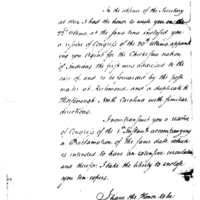 In the absence of the Secretary
at War I had the honor to wish you on the
ultimo at the same time enclosed you
a resolve of Congress of the 20th Ultimo appoint
ing you Agent for the Chickasaw nation
of Indians the first was addressed to the
care of and to be forwarded by the post
master at Richmond, and a duplicate to
Hillsborough North Carolina with similar
directions.
I now transmit you a resolve
of Congress of the Instant accompanying
a Proclamation of the same date which
is intended to have an extensive circulation
and therefore I take the liberty to enclose
you ten copies.
I have the Honor to be